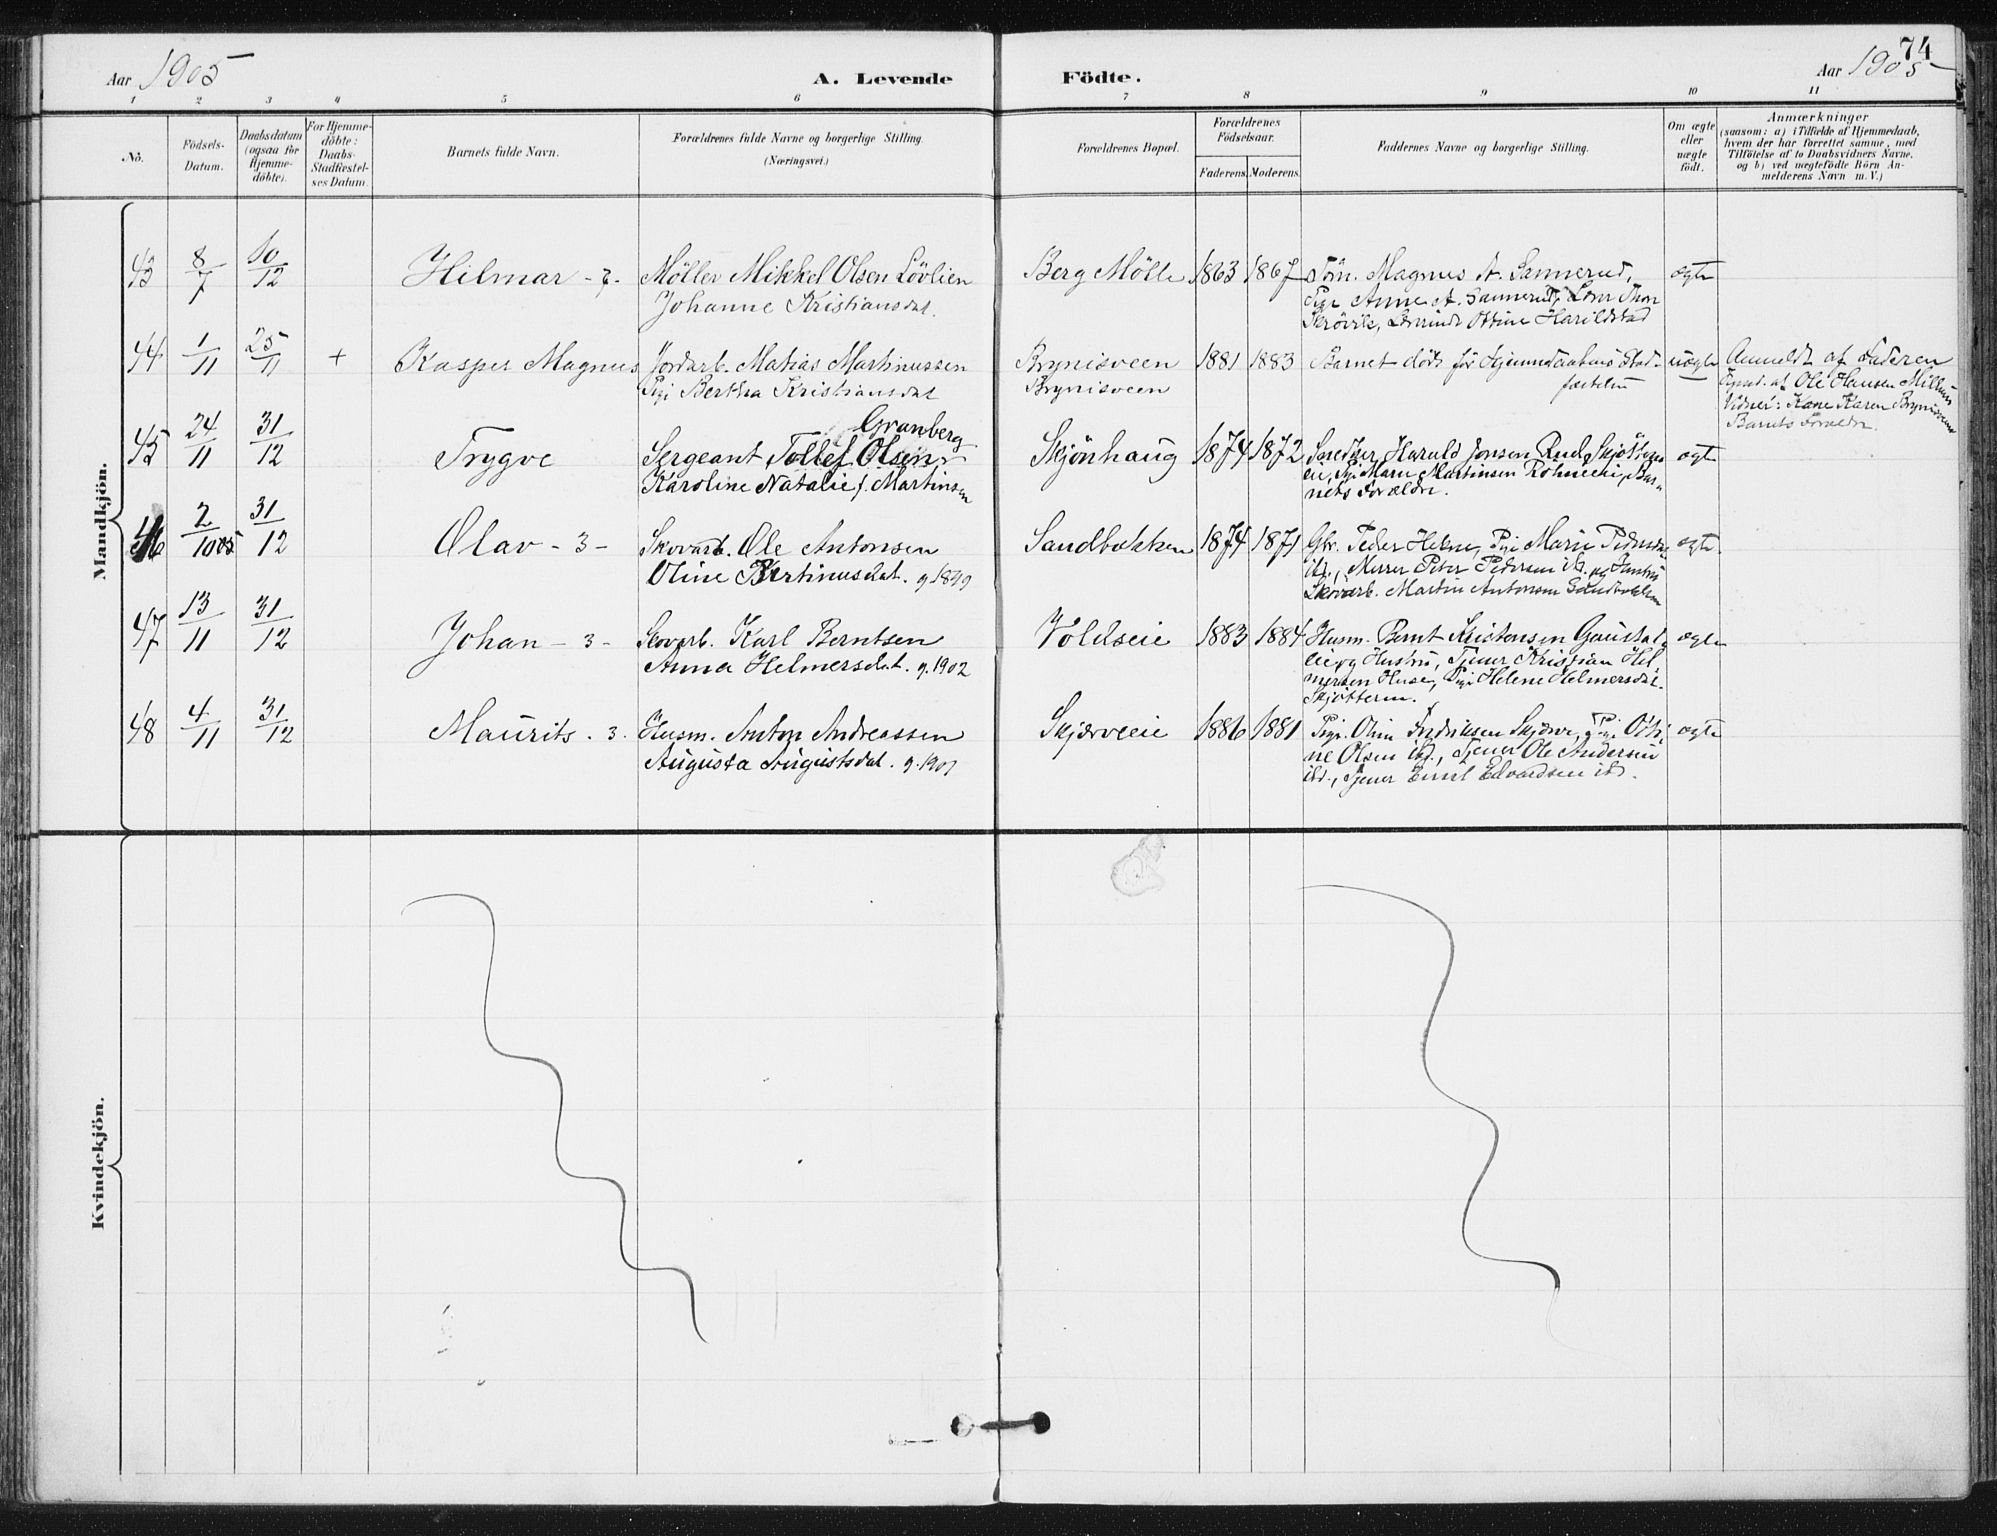 74
Aar 1905
A. Levende Födte.
Aar 1905
1 2 3 4 5 6 7 8 9 10 11
No.
Födsels-
Datum.
Daabsdatum
(ogsaa för
Hjemme-
döbte).
For Hjemme-
döbte:
Daabs-
Stadfæstel-
ses Datum.
Barnets fulde Navn.
Forældrenes fulde Navne og borgerlige Stilling.
(Næringsvei.)
Forældrenes Bopæl.
Forældrenes
Födselsaar.
Faderens. Moderens.
Faddernes Navne og borgerlige Stilling.
Om ægte
eller
uægte
födt.
Anmærkninger
(saasom: a) i Tilfælde af Hjemmedaab,
hvem der har forrettet samme, med
Tilföielse af to Daabsvidners Navne,
og b) ved uægtefödte Börn An-
melderens Navn m. V.)
Mandkjön.
43 8/7 10/12 Hilmar
Möller Mikkel Olsen Lövlien
Johanne Kristiansdat.
Berg Mölle 1863 1867
Töm. Magnus A. Sannerud,
Pige Anne A. Sannerud,
ægte
44 1/11 25/11 + Kasper Magnus
Jordarb. Matias Martinussen
Pige Bertha Kristiansdat
Brynisveen
Brynisveen
1881 1883
Barnet döde för Hjemmedaabens Stad-
fæstelse
uægte
Anmeldt af Faderen
af Ole Hansen
Vidner: Kone Karen Brynisveen
Barnets Forældre.
45 24/11 31/12 Trygve
Granberg
Sergeant Tollef Olsen
Karoline Natalie f. Martinsen
Skjönhaug 1874 1872
Harald Jonsen Rud, Skjötten-
eie, Pige Marie Martinsen Bar-
nets Forældre.
ægte
46 2/10 05 31/12 Olav - 3 -
Skovarb. Ole Antonsen
Oline Bertinusdat. g. 1899
Sandbakken 1874 1871
Gbr. Peder Pige Marie Pedersdat
ibd., Murer Peter Pedersen ib. og Hustru
Skovarb. Martin Antonsen Sandbakken
ægte
47 13/11 31/12 Johan - 3 -
Skovarb. Karl Berntsen
Anna Helmersdat. g. 1902
Voldseie 1883 1884
Husm. Bernt Kristensen Gaustad-
eie og Hustru, Tjener Kristian Hel-
mersen Huse, Pige Helene Helmersdat.
Skjötteren.
ægte
48 4/11 31/12 Maurits - 3.
Husm. Anton Andreassen
Augusta Augustsdat. g. 1901
Skjærveeie 1886 1881
Pige Oline Fredriksen Skjærve, Pige Othi-
ne Olsen ibd., Tjener Ole Andersen
ibd., Tjener Emil Edvardsen ibd.
ægte
Kvindekjön.